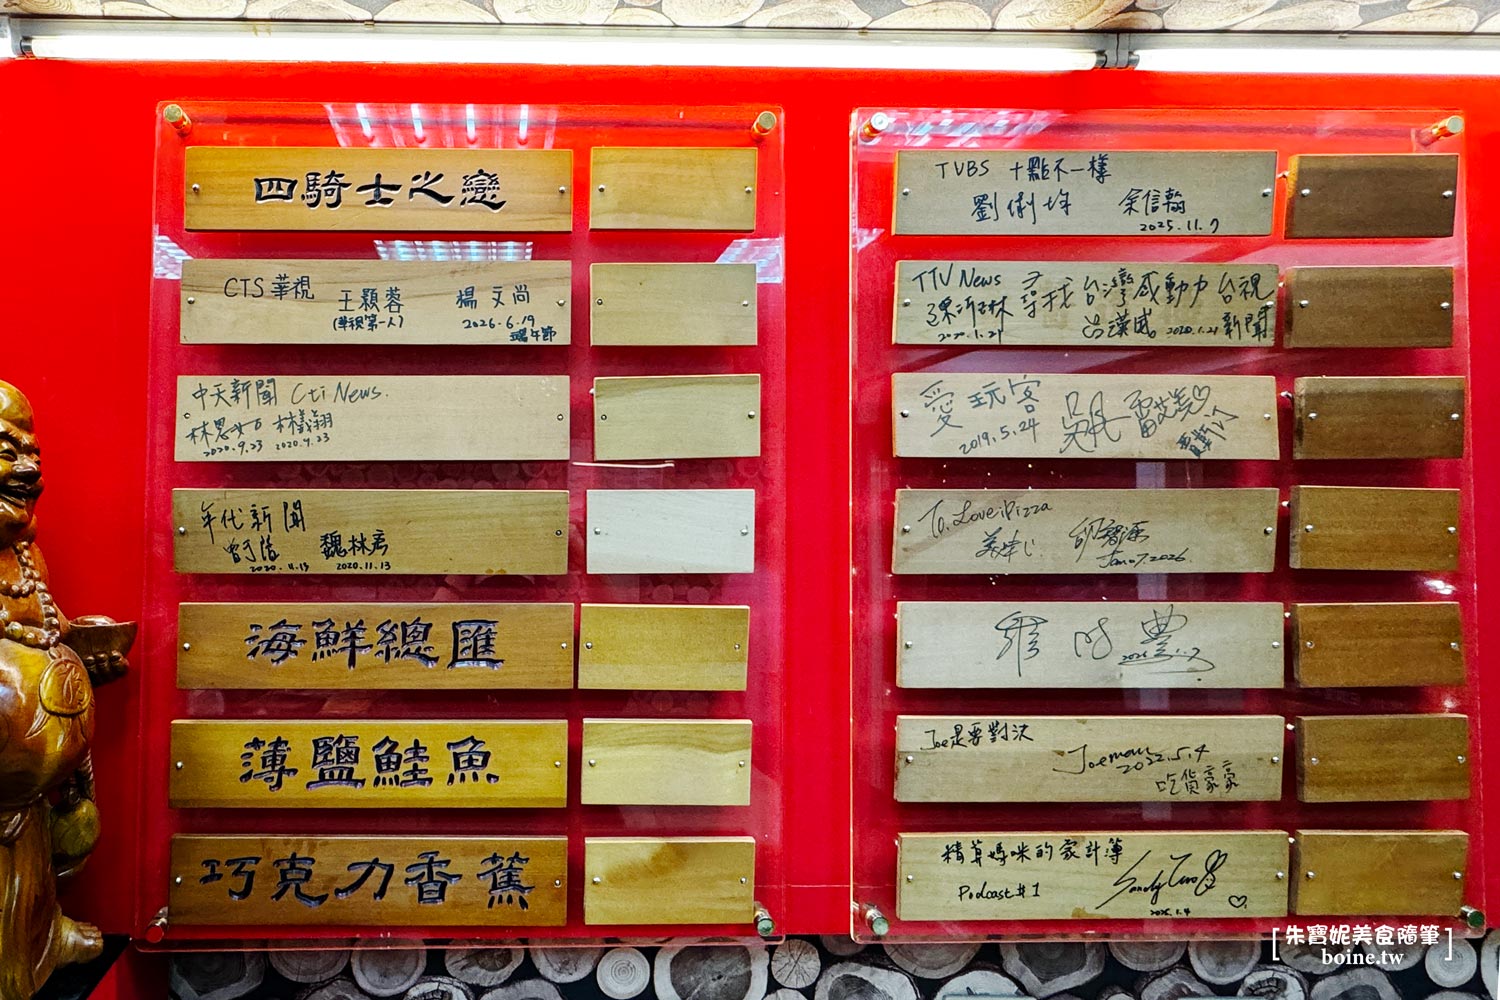 四騎士之戀
CTS 華視
王顯蓉
(華視第一人)
楊文尚
2026.6.19
端午節
中天新聞 Cti News.
2020.9.23
林義翔
2020.9.23
年代新聞
2020.11.13
魏林彥
2020.11.13
海鮮總匯
薄鹽鮭魚
巧克力香蕉
TVBS 十點不一樣
劉俐均
余信翰
2025.11.7
TTV News 尋找台灣感動力 台視
2020.1.21
呂漢威 2020.1.21 新聞
愛玩客
2019.5.24
吳
雷艾美
To. Love iPizza
胡智源
Jan.07.2026.
Joe是要對決
Joeman
2022.5.4
吃貨豪豪
精算媽咪的家計簿
Podcast #1
[朱寶妮美食隨筆]
boine.tw